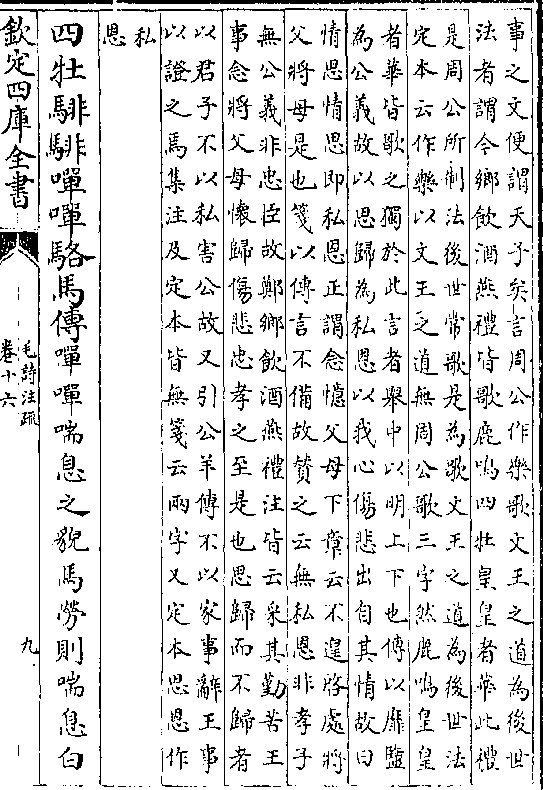 事之文便謂天子矣言周公作樂歌文王之道為後世
法者謂今鄉飲酒燕禮皆歌鹿鳴四牡皇皇者華此禮
是周公所制法後世常歌是為歌文王之道為後世法
定本云作樂以文王之道無周公歌三字然鹿鳴皇皇
者華皆歌之獨於此言者舉中以明上下也傳以靡盬
為公義故以思歸為私恩以我心傷悲出自其情故曰
情思情思即私恩正謂念憶父母下章云不遑啓處將
父將母是也箋以傳言不備故贊之云無私恩非孝子
無公義非忠臣故鄭鄉飲酒燕禮注皆云采其勤苦王
事念將父母懷歸傷悲忠孝之至是也思歸而不歸者
以君子不以私害公故又引公羊傳不以家事辭王事
以證之焉集注及定本皆無箋云兩字又定本思恩作
私恩
四牡騑騑嘽嘽駱馬傳嘽嘽喘息之貌馬勞則喘息白
欽定四庫全書
毛詩注疏
卷十六
九